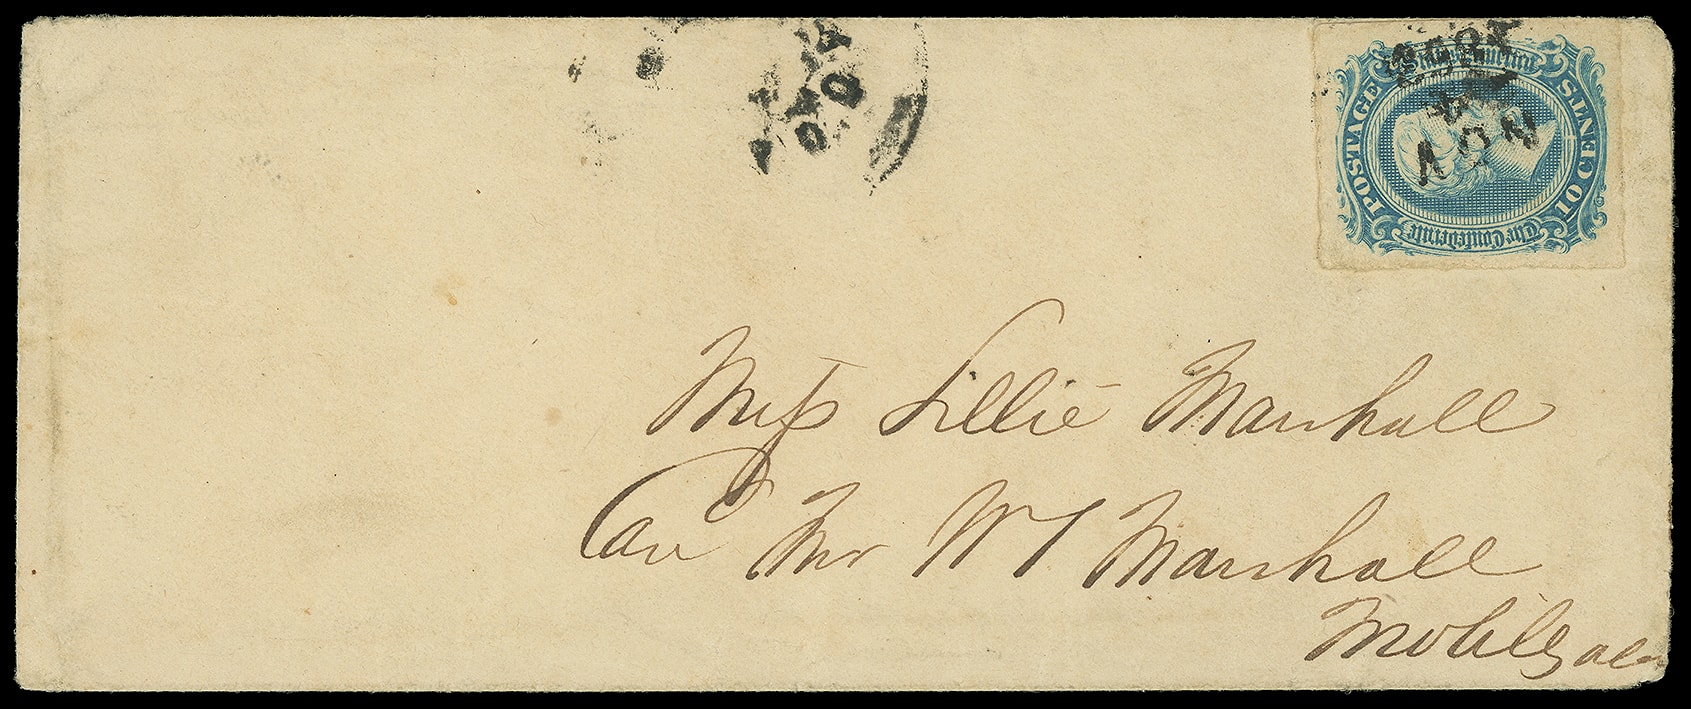 The Confederate
States of America
POSTAGE
10 CENTS
NOV
Miss Lillie Marshall
Care Mr W T Marshall
Mobile Ala